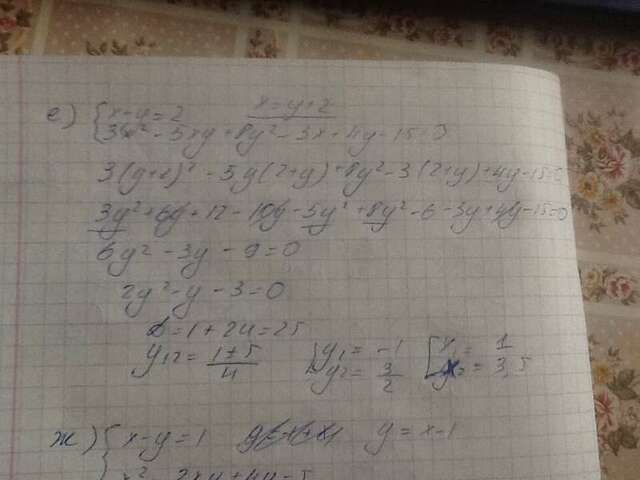 е) { x-y=2   x=y+2
3x² - 5xy + 8y² - 3x + 4y - 15=0
3(y+2)² - 5y(2+y) + 8y² - 3(2+y) + 4y - 15=0
3y² + 6y + 12 - 10y - 5y² + 8y² - 6 - 3y + 4y - 15=0
6y² - 3y - 9=0
2y² - y - 3=0
D=1+24=25
y₁₂ = (1±5)/4   y₁ = -1   x₁ = 1
y₂ = 3/2   x₂ = 3,5
ж) { x-y=1   y=x-1
x² - 2xy + 4y = 5